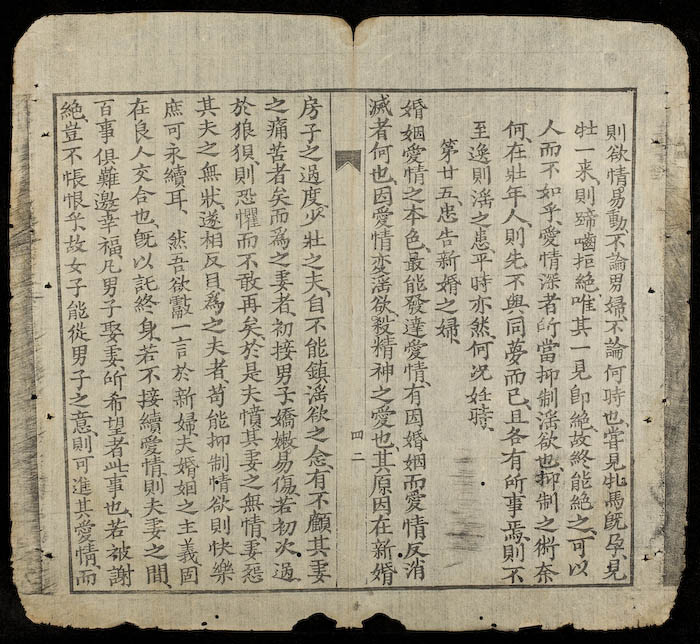 則欲情易動、不論男婦、不論何時也、嘗見牝馬旣孕、見
牡一来、則蹄嚙拒絶、唯其一見卽絶、故終能絶之、可以
人而不如乎、愛情深者、所當抑制淫欲也、抑制之術奈
何、在壮年人、則先不與同夢而已、且各有所事焉、則不
至逸則淫之患、平時亦然、何况妊時、
第廿五、忠告新婚之婦、
婚姻愛情之本色、最能發達愛情、有因婚姻而愛情反消
滅者何也、因愛情変淫欲、殺精神之愛也、其原因在新婚
四二
房子之過度、少壮之夫、自不能鎮淫欲之念、有不顧其妻
之痛苦者矣、而爲之妻者、初接男子、嬌嫩易傷、若初次過
於狼狽、則恐懼而不敢再矣、於是夫憤其妻之無情、妻怨
其夫之無狀、遂相反目、爲之夫者、苟能抑制情欲、則快樂
庶可永續耳、 然吾欲獻一言於新婦、夫婚姻之主義、固
在良人交合也、旣以託終身、若不接續愛情、則夫妻之間、
百事俱難邀幸福、凡男子娶妻、所希望者此事也、若被謝
絶、豈不悵恨乎、故女子能從男子之意、則可進其愛情、而